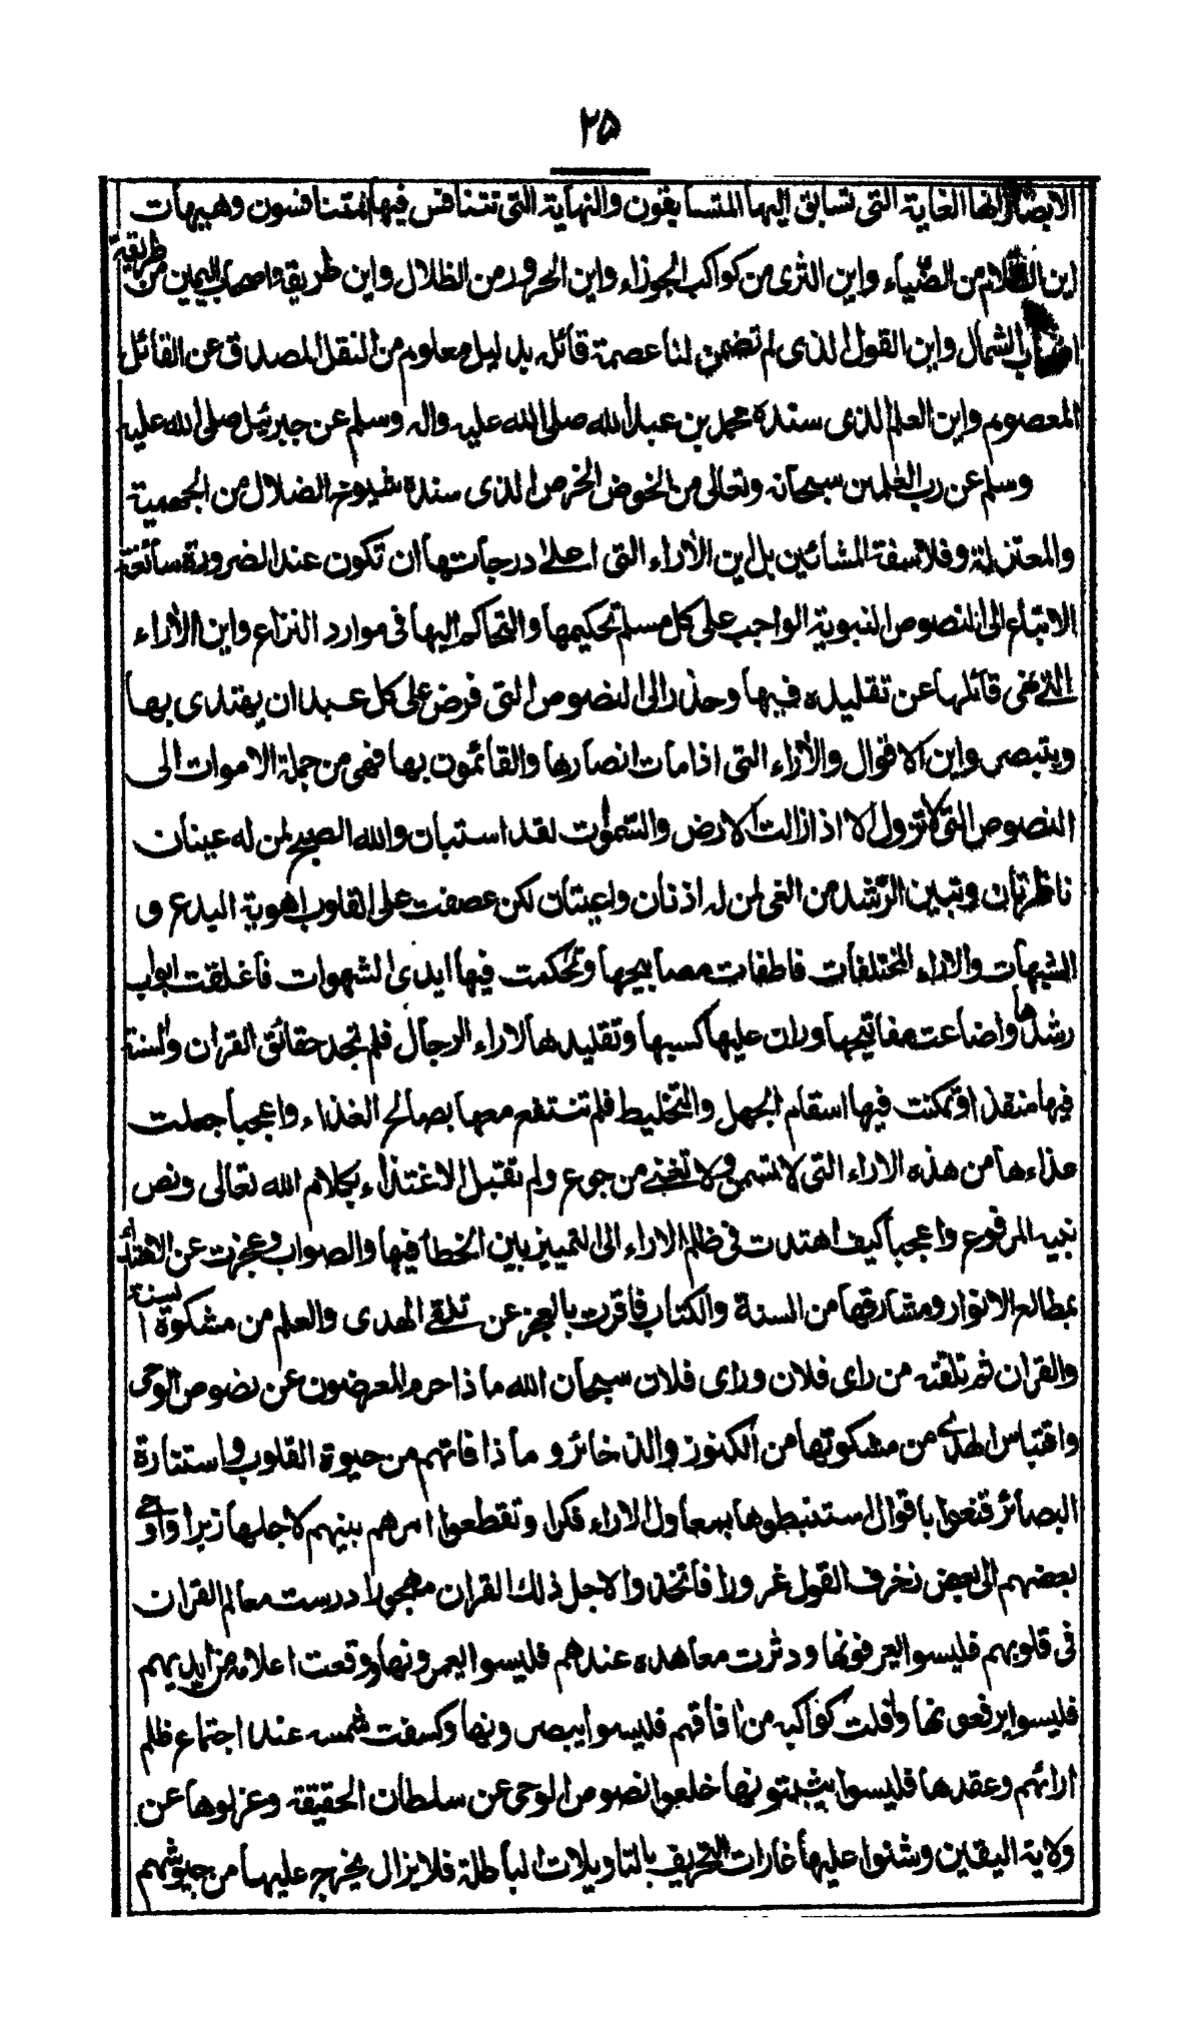 ٢٥
الابصار انها الغاية التى تسابق اليها المتسابقون والنهاية التى تتنافس فيها المتنافسون وهيهات
اين الظلام من الضياء واين الثرى من كواكب الجوزاء واين الحرور من الظلال واين طريقة اصحاب اليمين من طريقة
اصحاب الشمال واين القول الذى لم تضمن لنا عصمة قائله بدليل معلوم من النقل المصدق عن القائل
المعصوم واين العلم الذى سنده محمد بن عبد الله صلى الله عليه واله وسلم عن جبرئيل صلى الله عليه
وسلم عن رب العلمين سبحانه وتعالى من الخوض الخرص الذى سنده شيوخ الضلال من الجهمية
والمعتزلة وفلاسفة المشائين بل اين الأراء التى اعلى درجاتها ان تكون عند الضرورة سائغة
الاتباع الى النصوص النبوية الواجب على كل مسلم تحكيمها والتحاكم اليها فى موارد النزاع واين الأراء
التى نهى قائلها عن تقليده فيها وحذر الى النصوص التى فرض على كل عبد ان يهتدى بها
ويتبصر واين الاقوال والأراء التى اذا مات انصارها والقائمون بها فهى من جملة الاموات الى
النصوص التى لا تزول الا اذا زالت الارض والسموٰت لقد استبان والله الصبح لمن له عينان
ناظرتان وتبين الرشد من الغى لمن له اذنان واعيتان لكن عصفت على القلوب اهوية البدع و
الشبهات والاراء المختلفات فاطفات مصابيحها وتحكمت فيها ايدى الشهوات فاغلقت ابواب
رشدها واضاعت مفاتيحها وران عليها كسبها وتقليدها لاراء الرجال فلم تجد حقائق القران والسنة
فيها منفذا وتمكنت فيها اسقام الجهل والتخليط فلم تنتفع معها بصالح الغذاء واعجبا جعلت
غذاءها من هذه الاراء التى لا تسمن ولا تغنى من جوع ولم تقبل الاغتذاء بكلام الله تعالى ونص
نبيه المرفوع واعجبا كيف اهتدت فى ظلم الاراء الى التمييز بين الخطأ فيها والصواب وعجزت عن الاهتداء
بمطالع الانوار ومشارقها من السنة والكتاب فاقرت بالعجز عن تلقى الهدى والعلم من مشكوة السنة
والقران ثم تلقته من راى فلان وراى فلان سبحان الله ماذا حرم المعرضون عن نصوص الوحى
واقتباس الهدى من مشكوتها من الكنوز والذخائر و ماذا فاتهم من حيوة القلوب واستنارة
البصائر قنعوا باقوال استنبطوها بمعاول الاراء فكرا وتقطعوا امرهم بينهم لاجلها زبرا واوحى
بعضهم الى بعض زخرف القول غرورا فاتخذوا لاجل ذلك القران مهجورا درست معالم القران
فى قلوبهم فليسوا يعرفونها ودثرت معاهده عندهم فليسوا يعمرونها ووقعت اعلامه من ايديهم
فليسوا يرفعونها وأفلت كواكبه من افاقهم فليسوا يبصرونها وكسفت شمسه عند اجتماع ظلم
ارائهم وعقدها فليسوا يثبتونها خلعوا نصوص الوحى عن سلطان الحقيقة وعزلوها عن
ولاية اليقين وشنوا عليها غارات التحريف بالتاويلات الباطلة فلا يزال يخرج عليها من جيوشهم